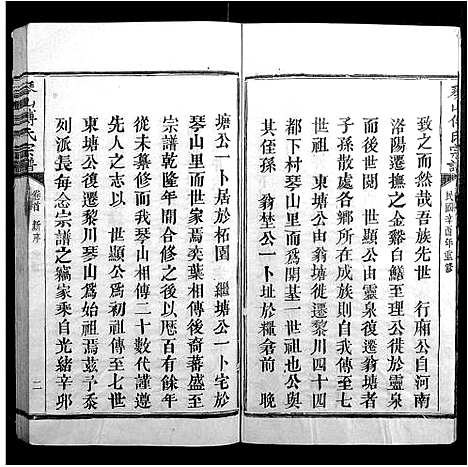 琴山傅氏宗譜
民國辛酉年重修
致之而然哉吾族先世 行廂公自河南
洛陽遷撫之金谿白鱔至伯禮公徙於靈泉
而居焉厥後 世顯公由靈泉復遷翁塘者
子孫散處各鄉所在成族則翁塘又為始遷
祖 東塘公由翁塘遷黎川四十四
都下村琴山里而為開基一世祖焉
其侄孫 翁埜公一卜址於糧倉前 晚
塘公一卜居於柘園 繼塘公一卜宅於
琴山里而世家焉奕葉相傳後裔蕃盛至
宗譜乾隆年間合修之後以歷百有餘年
從未纂修而我琴山相傳二十數代謹遵
先人之志以 世顯公為鼻祖傳至七世
東塘公復遷黎川琴山為始祖焉茲予忝
列派長每念宗譜之竊家乘自光緒辛卯
琴山傅氏宗譜
卷首 新序
二